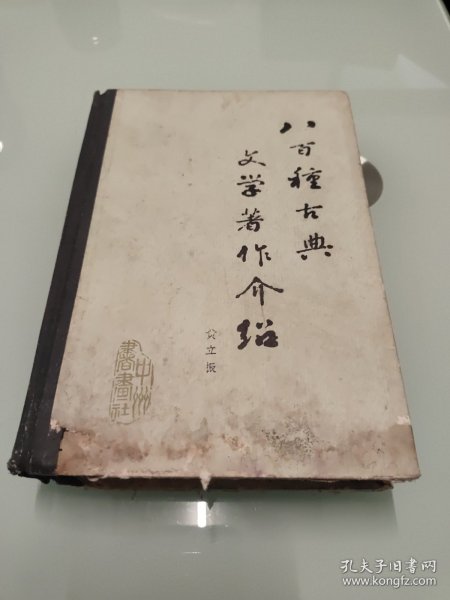 八百種古典
文学著作介绍
黄立振
中州
書畫社
孔夫子旧书网
www.kongfz.com